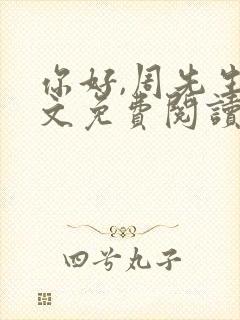 你好,周先生
文免费閱讀
四兮丸子